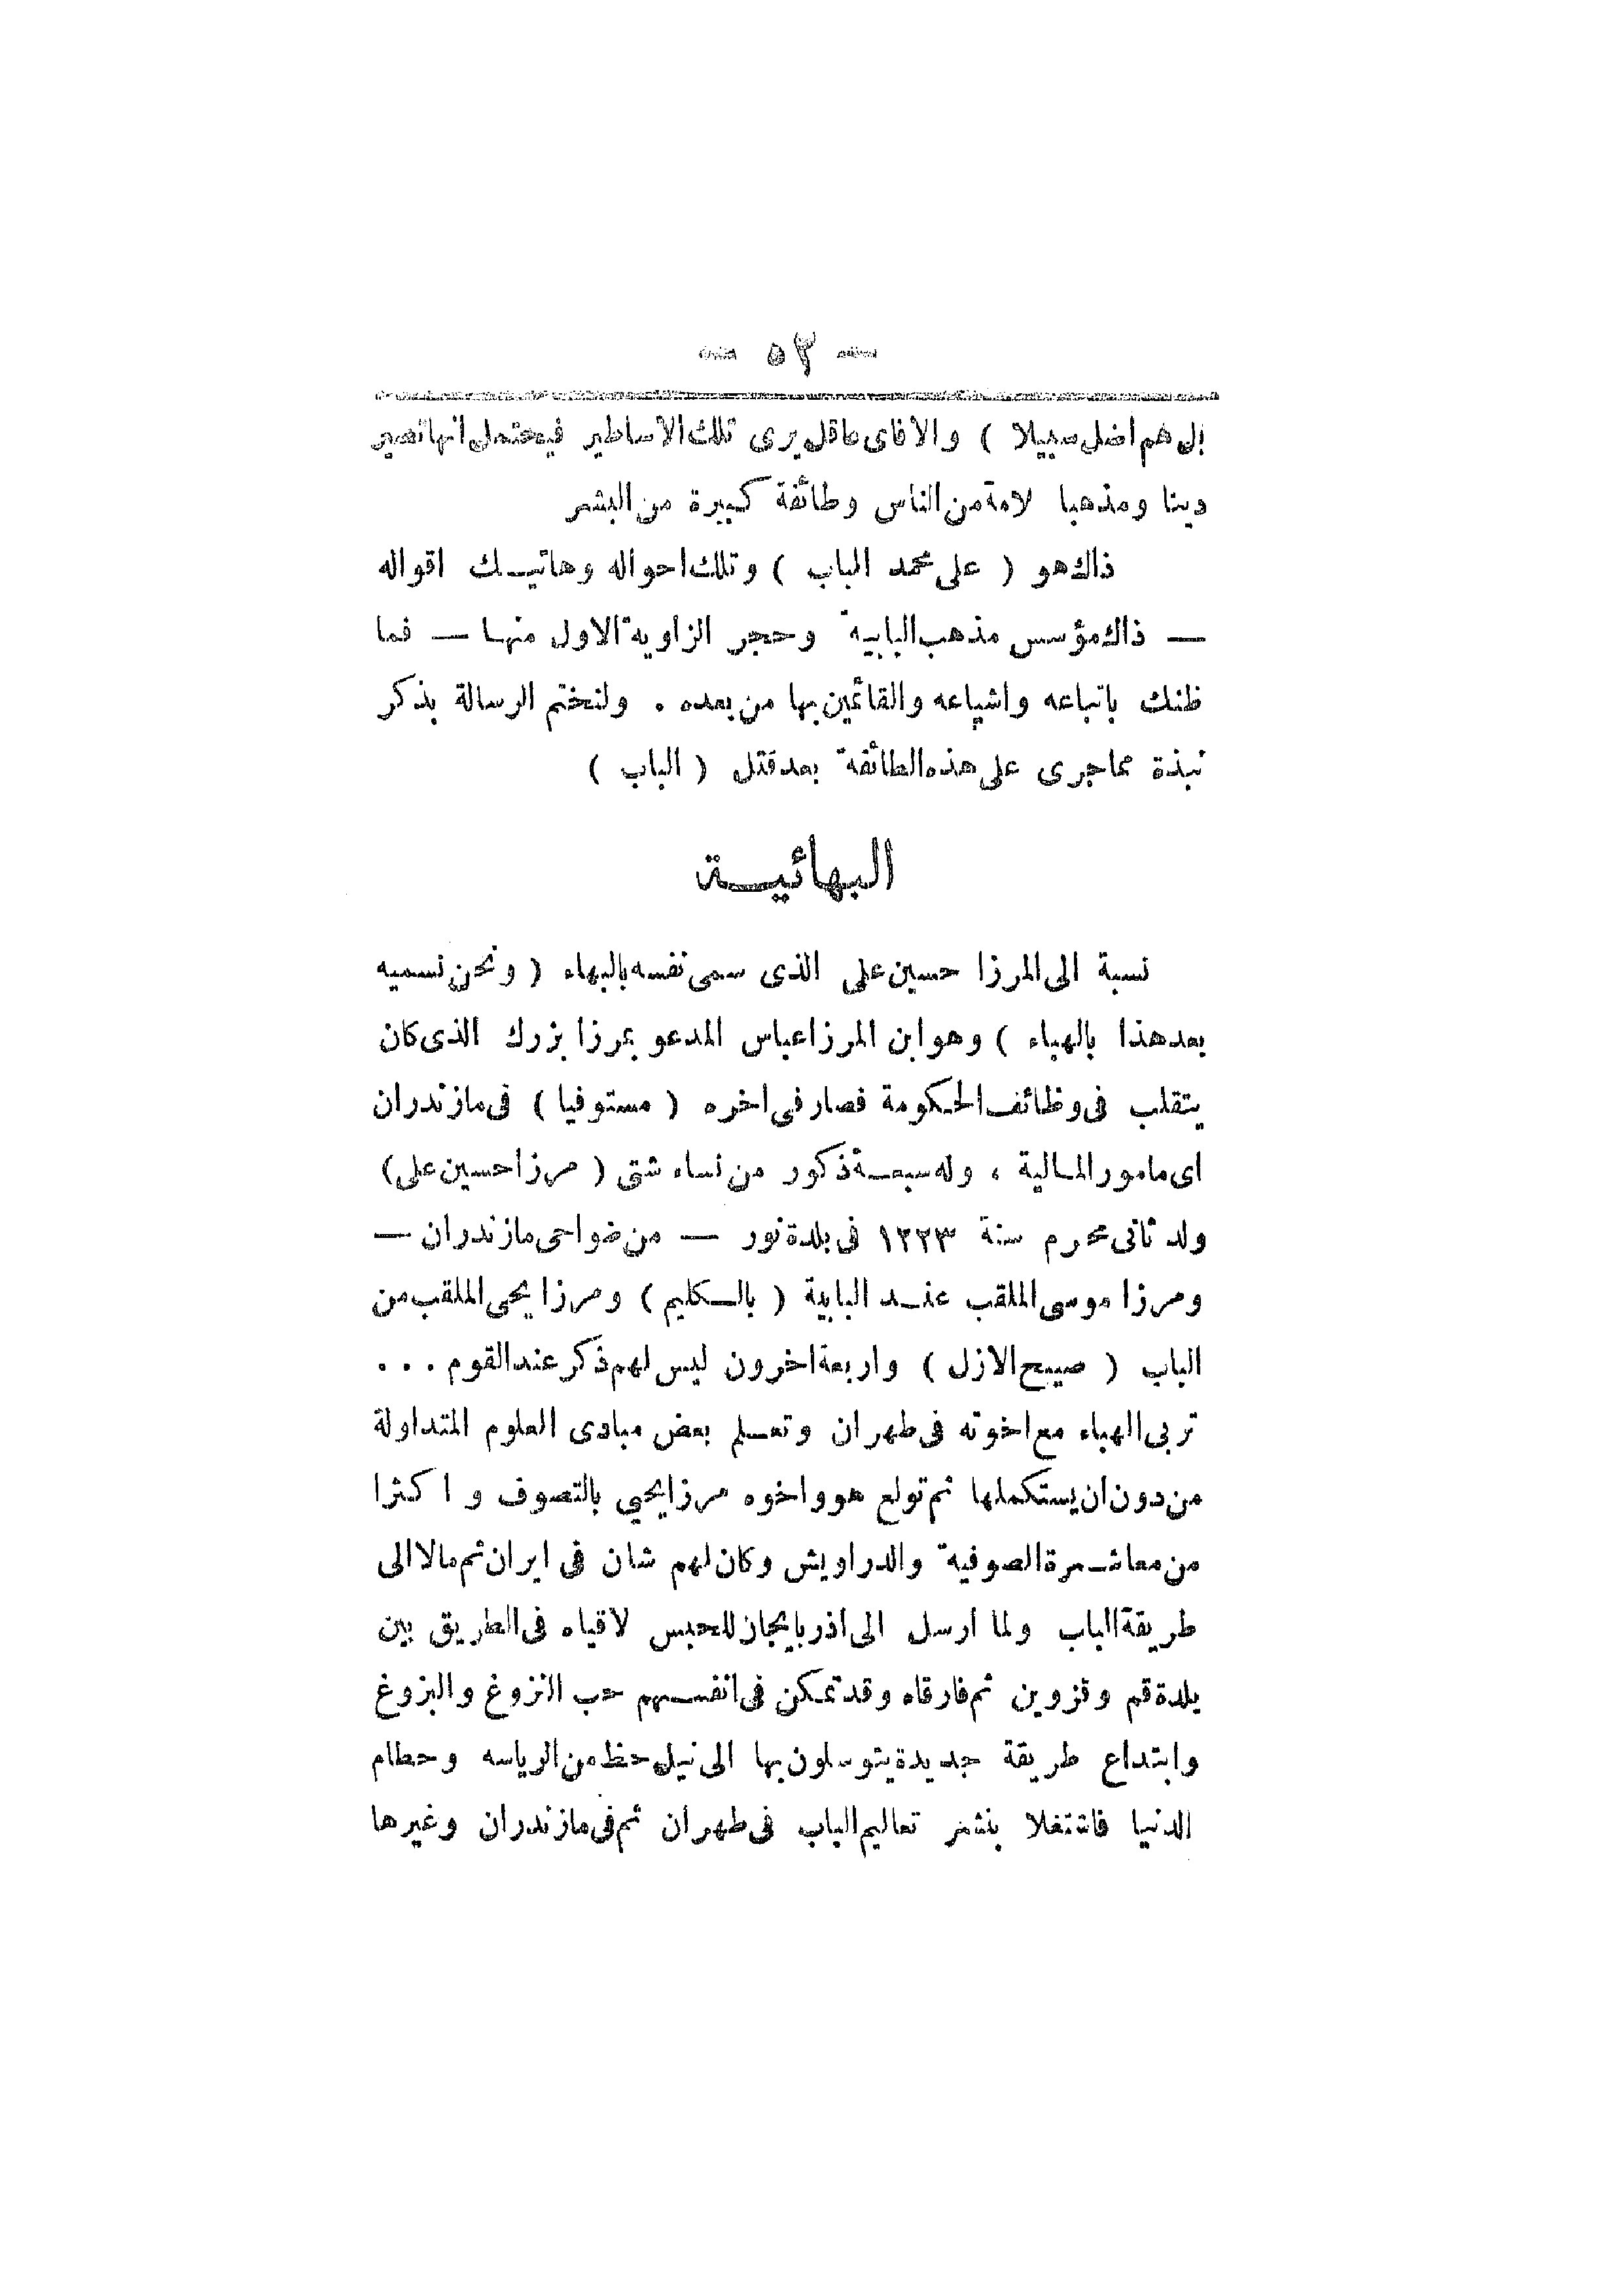 — ٥٣ —
بل هم اضل سبيلا ) والا فاى عاقل يرى تلك الاساطير فيحتمل انها تصير
دينا ومذهبا لامة من الناس وطائفة كبيرة من البشر
ذاك هو ( على محمد الباب ) وتلك احواله وهاتيك اقواله
— ذاك مؤسس مذهب البابية وحجر الزاوية الاول منها — فما
ظنك باتباعه واشياعه والقائمين بها من بعده . ولنختم الرسالة بذكر
نبذة مما جرى على هذه الطائفة بعد قتل ( الباب )
البهائية
نسبة الى المرزا حسين على الذى سمى نفسه بالبهاء ( ونحن نسميه
بعد هذا بالهباء ) وهو ابن المرزا عباس المدعو بمرزا بزرك الذى كان
يتقلب فى وظائف الحكومة فصار فى اخره ( مستوفيا ) فى مازندران
اى مامور المالية ، وله سبعة ذكور من نساء شتى ( مرزا حسين على )
ولد ثانى محرم سنة ١٢٢٣ فى بلدة نور — من ضواحى مازندران —
ومرزا موسى الملقب عند البابية ( بالكليم ) ومرزا يحى الملقب من
الباب ( صبيح الازل ) واربعة اخرون ليس لهم ذكر عند القوم . . .
تربى الهباء مع اخوته فى طهران وتعلم بعض مبادى العلوم المتداولة
من دون ان يستكملها ثم تولع هو واخوه مرزا يحيى بالتصوف واكثرا
من معاشرة الصوفية والدراويش وكان لهم شان فى ايران ثم مالا الى
طريقة الباب ولما ارسل الى اذربايجان للحبس لاقياه فى الطريق بين
بلدة قم وقزوين ثم فارقاه وقد تمكن فى انفسهم حب النزوغ والبزوغ
وابتداع طريقة جديدة يتوسلون بها الى نيل حظ من الرياسه وحطام
الدنيا فاشتغلا بنشر تعاليم الباب فى طهران ثم فى مازندران وغيرها